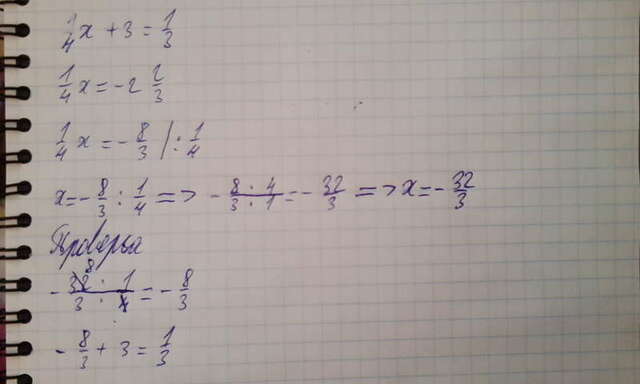 1/4 x + 3 = 1/3
1/4 x = -2 2/3
1/4 x = - 8/3 | : 1/4
x = - 8/3 : 1/4 => - 8·4/3·1 = - 32/3 => x = - 32/3
Проверка
- 32 8 · 1/3 · 4 = - 8/3
- 8/3 + 3 = 1/3